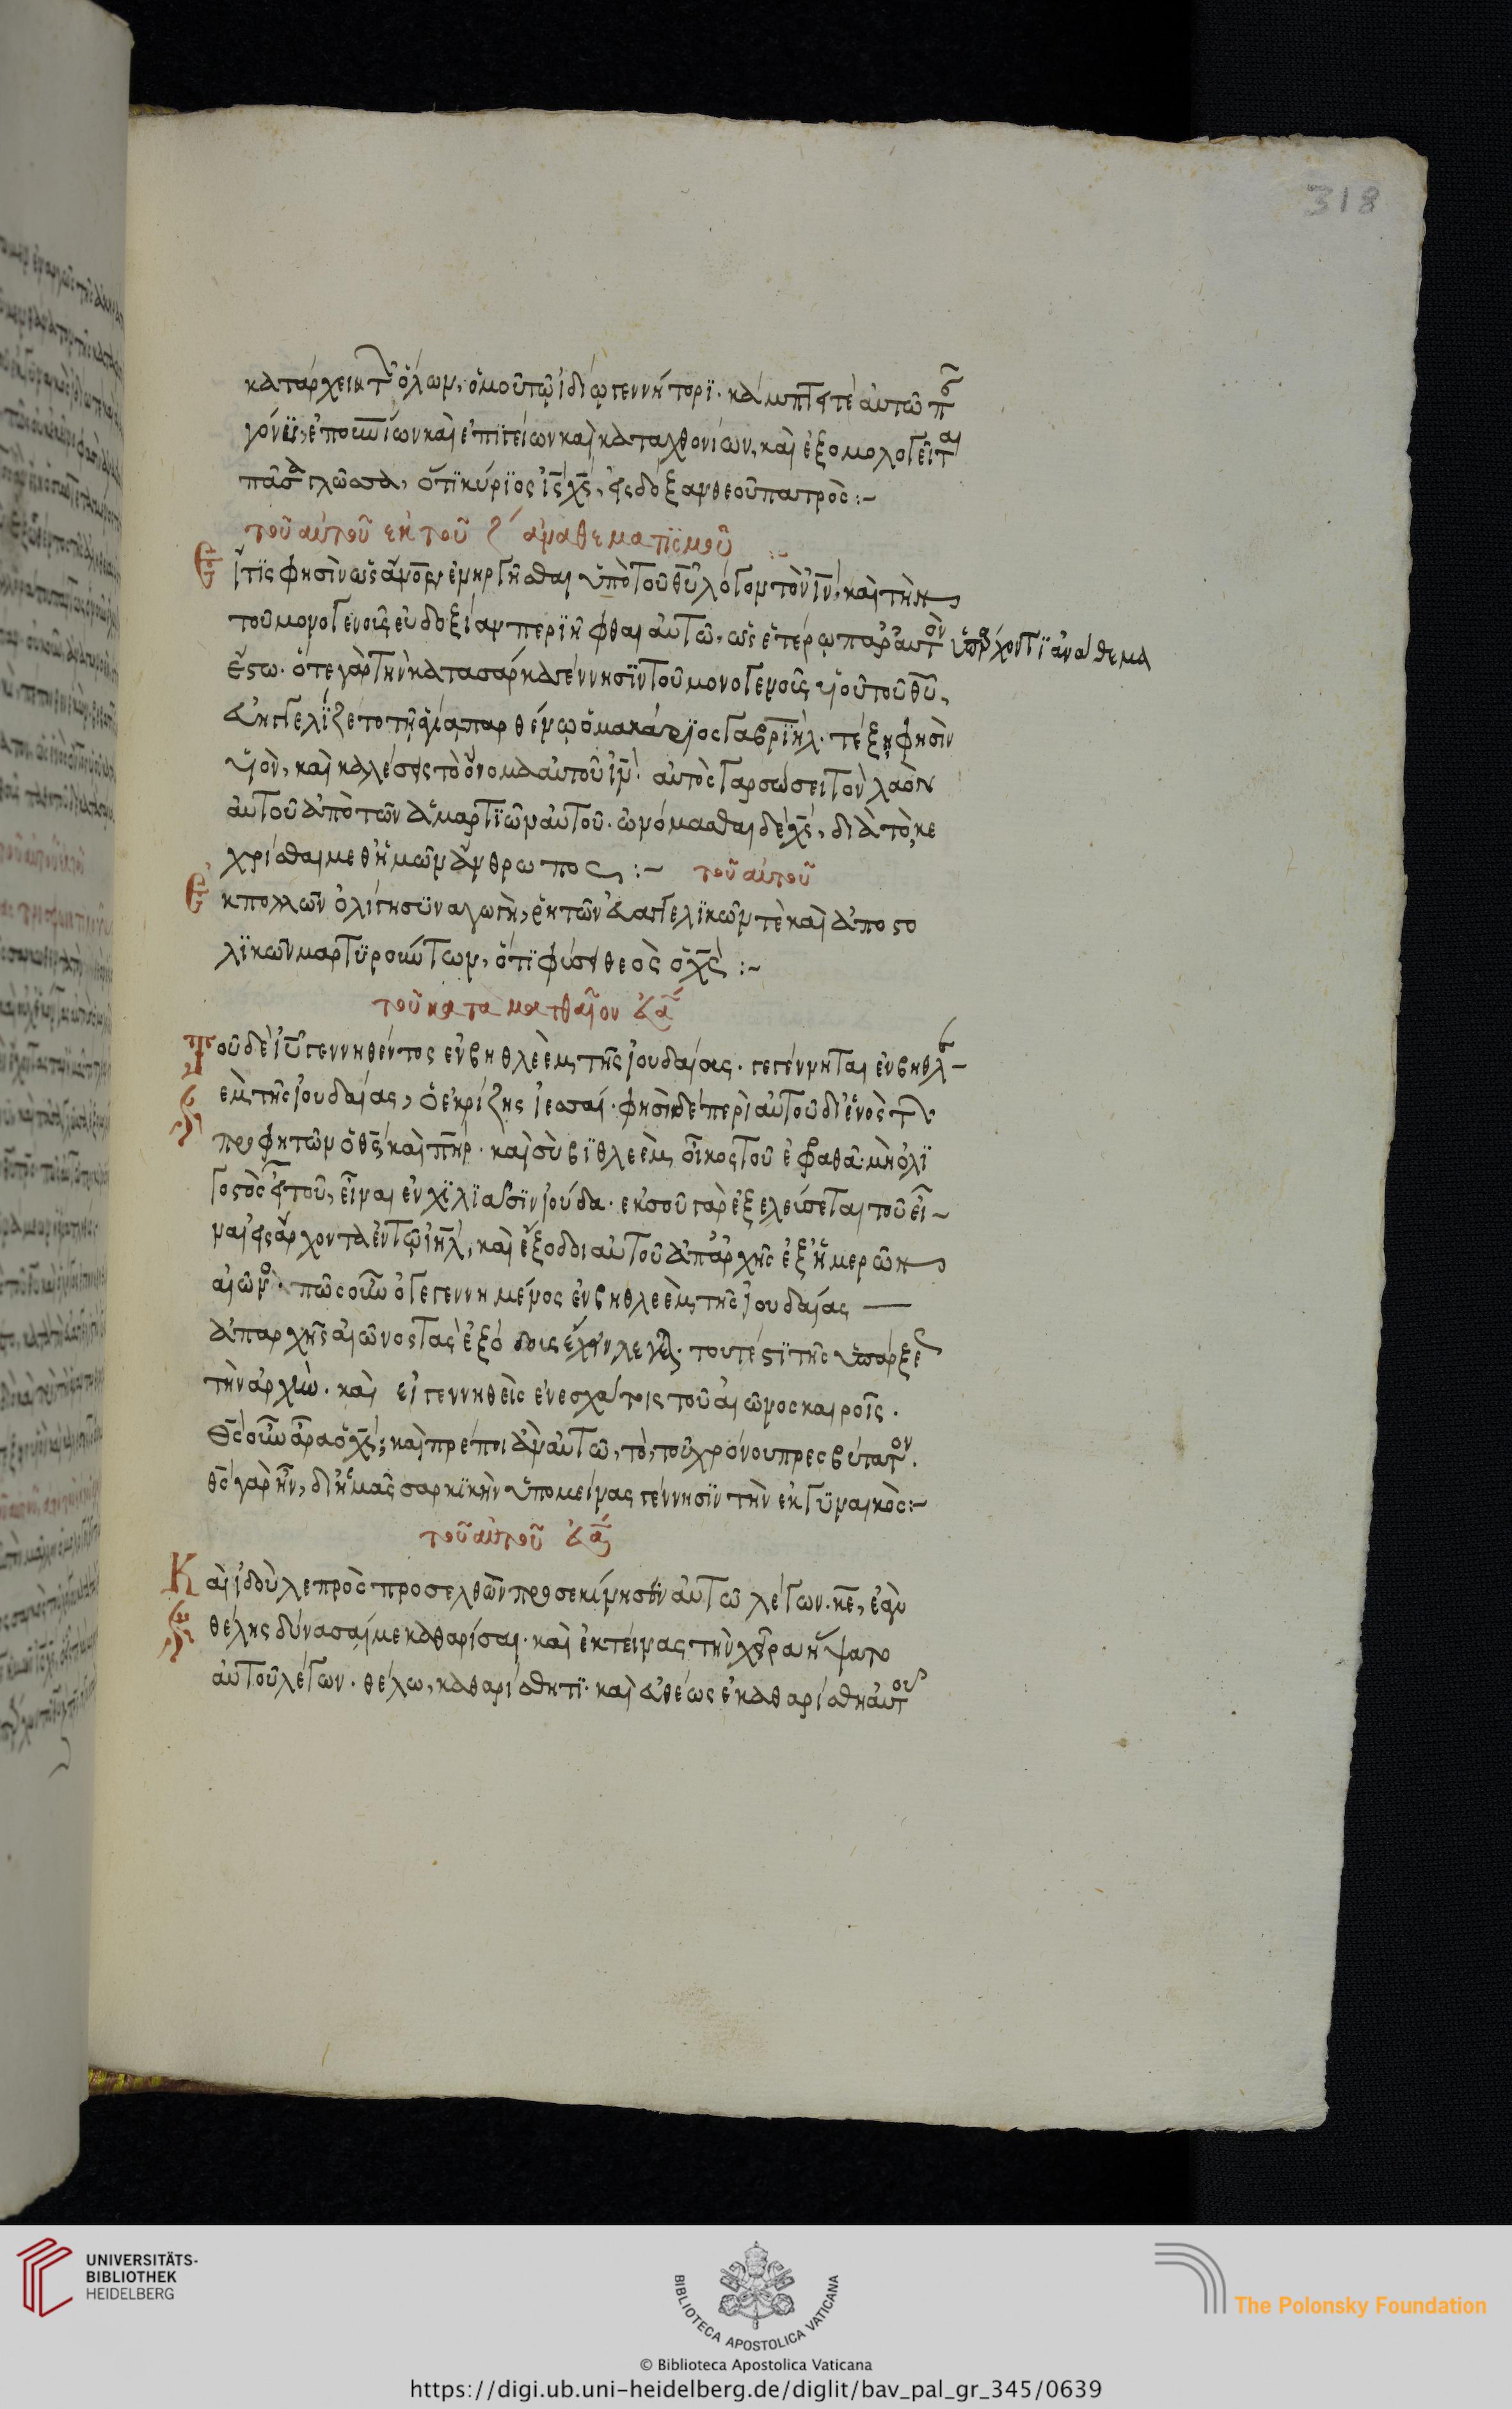 318
κατάρχειν τῶν ὅλων, ὁμοῦ τῷ ἰδίῳ γεννήτορϊ. κάμπτεϊ τὲ αὐτῶ πᾶν
γόνϋ, ἐπουνίων καὶ ἐπϊγείων καὶ καταχθονίων, καὶ ἐξομολογεῖται
πᾶσα γλῶσσα, ὅτϊ κύρϊος ἰς χς, εἰς δόξαν θεοῦ πατρὸς :-
τοῦ αὐτοῦ ἐκ τοῦ ἀναθεματϊσμοῦ
Εἴ τϊς φησὶν ὡς ἄνον ἐνηργῆσθαι ὑπὸ τοῦ θυ λόγου τὸν ιν, καὶ τὴν
τοῦ μονογενοῦς εὐδοξίαν περϊῆφθαι αὐτῶ, ὡς ἑτέρῳ παρ' αὐτὸν ὑπάρχοντϊ ἀνάθεμα
ἔστω. ὅτε γὰρ τὴν κατα σάρκα γέννησϊν τοῦ μονογενοῦς υἱοῦ τοῦ θυ,
εὐηγγελίζετο τῇ ἁγίᾳ παρθένῳ ὁ μακάρϊος γαβρϊὴλ. τέξῃ φησὶν
υἱὸν, καὶ καλέσεις τὸ ὄνομα αὐτοῦ ιν. αὐτὸς γαρ σώσει τὸν λαὸν
αὐτοῦ ἀπὸ τῶν ἁμαρτϊῶν αὐτοῦ. ὠνόμασθαι δέ χς, διὰ τὸ, κε
χρίσθαι μεθ' ἡμῶν ἄνθρωπος :- τοῦ αὐτοῦ
Εκ πολλῶν ὀλίγη συναγωγὴ, ῥητῶν εὐαγγελϊκῶν τὲ καὶ ἀποστο
λϊκῶν μαρτϋρούντων, ὅτϊ φύσει θεὸς ὁ χς :-
τοῦ κατα ματθαῖον εὐα
Τοῦ δὲ ιυ γεννηθέντος ἐν βηθλεὲμ τῆς ἰουδαίας. γεγέννηται ἐν βηθλε-
ὲμ τῆς ἰουδαίας, ὁ ἐκ ρίζης ἰεσσαί. φησὶν δὲ περὶ αὐτοῦ δι' ἑνὸς τῶν
προφητῶν ὁ θς καὶ πηρ. καὶ σὺ βϊθλεὲμ οἶκος τοῦ ἐφραθᾶ. μὴ ὀλϊ
γοστὸς εἶ τοῦ, εἶναι ἐν χϊλϊάσϊν ἰούδα. ἐκ σοῦ γὰρ ἐξελεύσεται τοῦ εἶ-
ναι εἰς ἄρχοντα ἐν τῷ ιηλ, καὶ ἔξοδοι αὐτοῦ ἀπ' ἀρχῆς ἐξ ἡμερῶν
αἰῶνος. πῶς οὖν ὁ γεγεννημένος ἐν βηθλεὲμ τῆς ἰουδαίας
ἀπαρχῆς αἰῶνος τὰς ἐξόδους ἔχειν λέγεται. τουτέστϊ τῆς ὑπάρξεως
τὴν ἀρχὴν. καὶ εἰ γεννηθεὶς ἐν ἐσχάτοις τοῦ αἰῶνος καιροῖς.
Θς οὖν ἄρα ὁ χς; καὶ πρέποι ἂν αὐτῶ, τὸ, τοῦ χρόνου πρεσβύτατον.
θς γὰρ ἦν, δι' ἡμᾶς σαρκϊκὴν ὑπομείνας γέννησϊν τὴν ἐκ γϋναικὸς :-
τοῦ αὐτοῦ εὐα
Καὶ ἰδοὺ λεπρὸς προσελθῶν προσεκύνησεν αὐτῶ λέγων. κε, ἐὰν
θέλης δύνασαί με καθαρίσαι. καὶ ἐκτείνας τὴν χεῖρα ἥψατο
αὐτοῦ λέγων. θέλω, καθαρίσθητϊ. καὶ εὐθέως ἐκαθαρίσθη αὐτοῦ
UNIVERSITÄTS-
BIBLIOTHEK
HEIDELBERG
BIBLIOTECA APOSTOLICA VATICANA
The Polonsky Foundation
© Biblioteca Apostolica Vaticana
https://digi.ub.uni-heidelberg.de/diglit/bav_pal_gr_345/0639